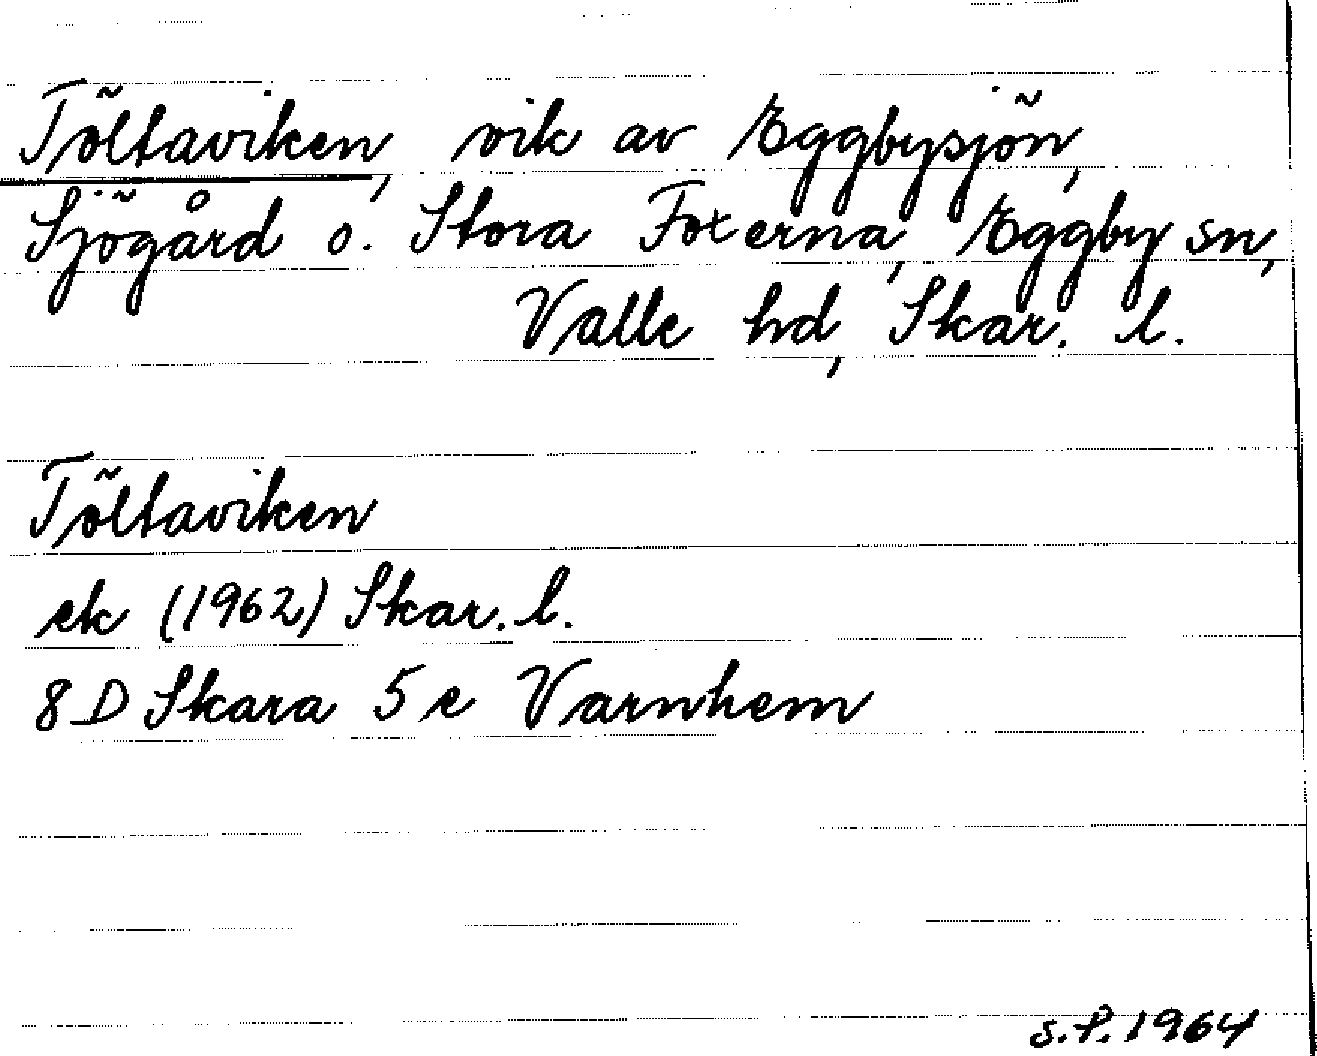 Töltaviken, vik av Eggbysjön,
Sjögård o. Stora Foxerna, Eggby sn,
Valle hd, Skar. l.
Töltaviken
ek (1962) Skar. l.
8 D Skara 5 e Varnhem
S.P. 1964